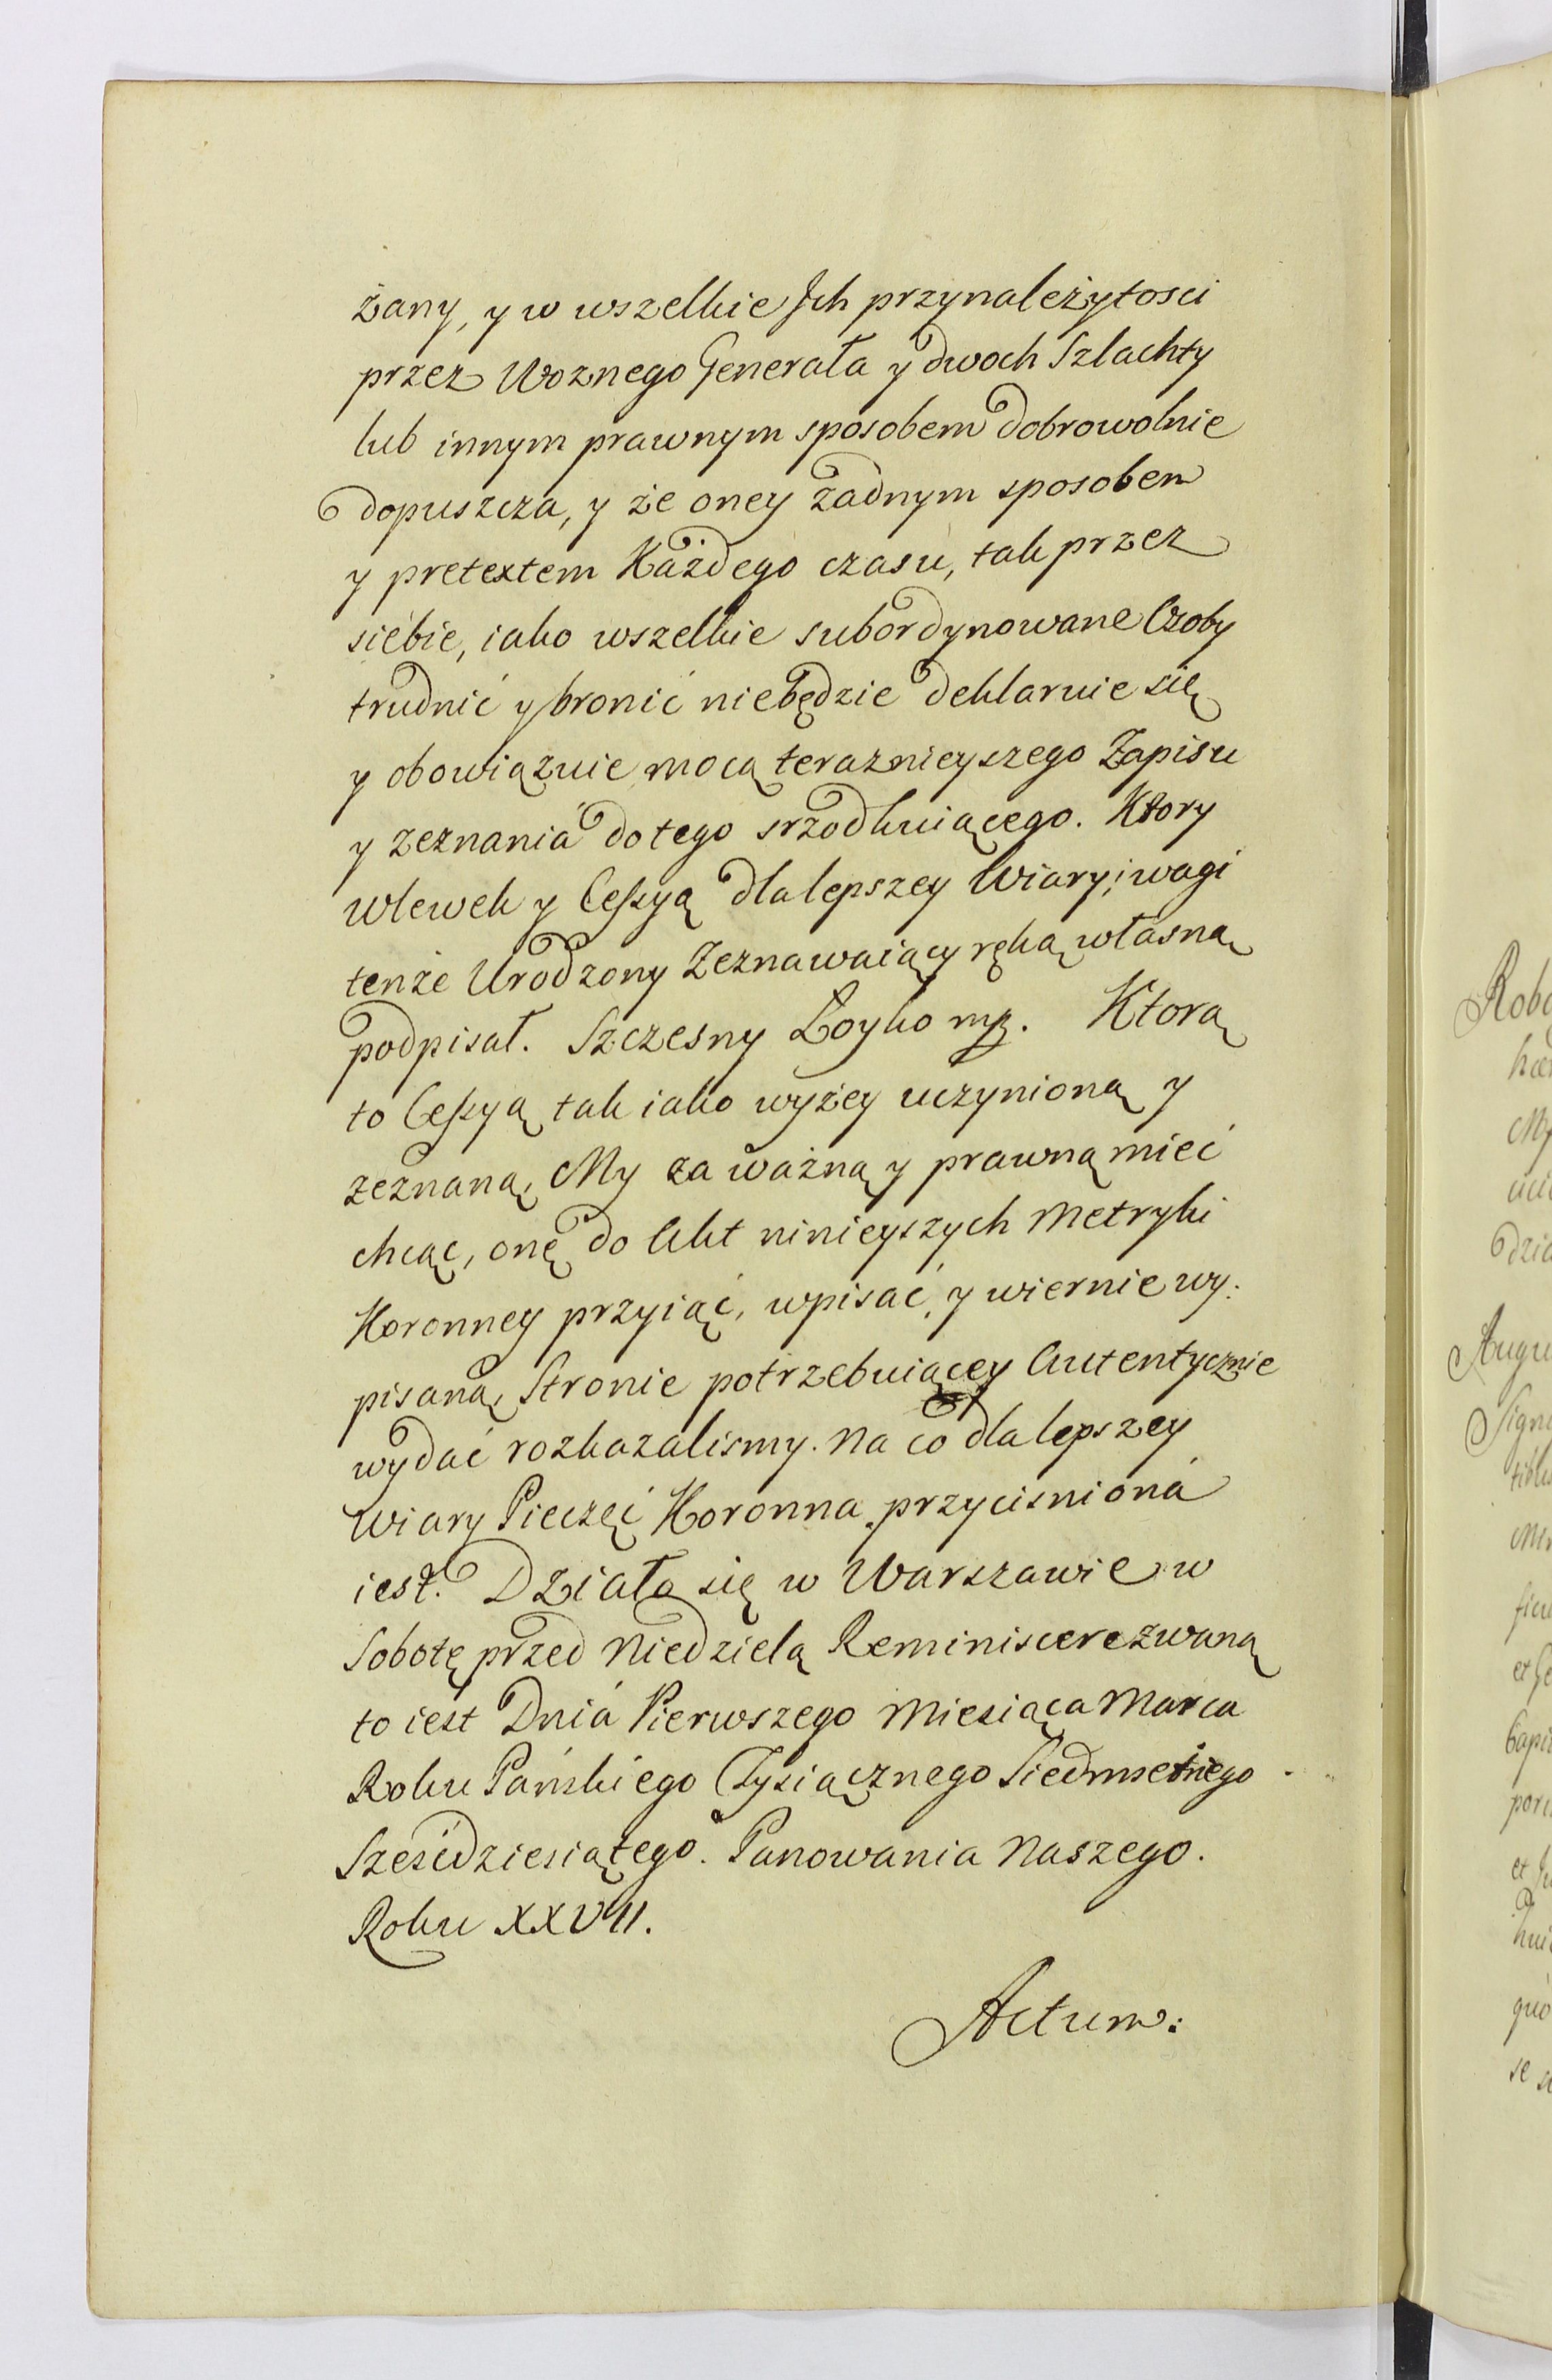 żany, y w wszelkie Ich przynależytosci
przez Woznego Generała y dwoch Szlachty
lub innym prawnym sposobem dobrowolnie
dopuszcza, y że oney żadnym sposobem
y pretextem Każdego czasu, tak przez
siebie, iako wszelkie subordynowane Osoby
trudnić y bronić niebędzie deklaruie się
y obowiązuie mocą teraznieyszego Zapisu
y zeznania do tego srzodkuiącego. Ktory
wlewek y Cessyą dla lepszey Wiary i wagi
tenże Urodzony Zeznawaiący ręką własną
podpisał. Szczesny Łoyko mp. Ktorą
to Cessyą tak iako wyżey uczynioną y
zeznaną, My za ważną y prawną mieć
chcąc, onę do Akt ninieyszych Metryki
Koronney przyiąć, wpisać, y wiernie wy:
pisaną, Stronie potrzebuiącey Autentycznie
wydać rozkazalismy. Na co dla lepszey
Wiary Pieczęć Koronna przycisniona
iest. Działo się w Warszawie w
Sobotę przed Niedzielą Reminiscere zwaną
to iest Dnia Pierwszego Miesiąca Marca
Roku Pańskiego Tysiącznego Siedmsetnego
Sześćdziesiątego. Panowania Naszego.
Roku XXVII.
Actum: